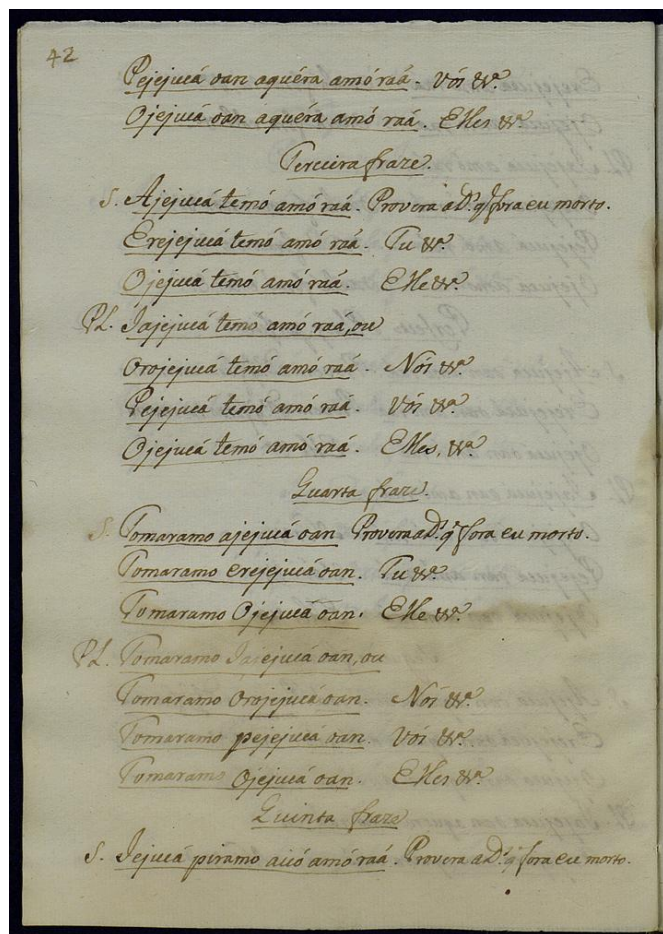 42
Pejejucá oan aquéra amó raá. Vós &ª.
Ojejucá oan aquéra amó raá. Elles &ª.
Terceira fraze.
S. Ajejucá temó amó raá. Provera a D.ˢ q̃ fora eu morto.
Erejejucá temó amó raá. Tu &ª.
Ojejucá temó amó raá. Elle &ª.
Pl. Jajejucá temó amó raá, ou
Orojejucá temó amó raá. Nós &ª.
Pejejucá temó amó raá. Vós &ª.
Ojejucá temó amó raá. Elles, &ª.
Quarta fraze.
S. Tomaramo ajejucá oan. Provera a D.ˢ q̃ fora eu morto.
Tomaramo erejejucá oan. Tu &ª.
Tomaramo Ojejucá oan. Elle &ª.
Pl. Tomaramo Jajejucá oan, ou
Tomaramo Orojejucá oan. Nós &ª.
Tomaramo pejejucá oan. Vós &ª.
Tomaramo Ojejucá oan. Elles &ª.
Quinta fraze
S. Jejucá piramo aicó amó raá. Provera a D.ˢ q̃ fora eu morto.